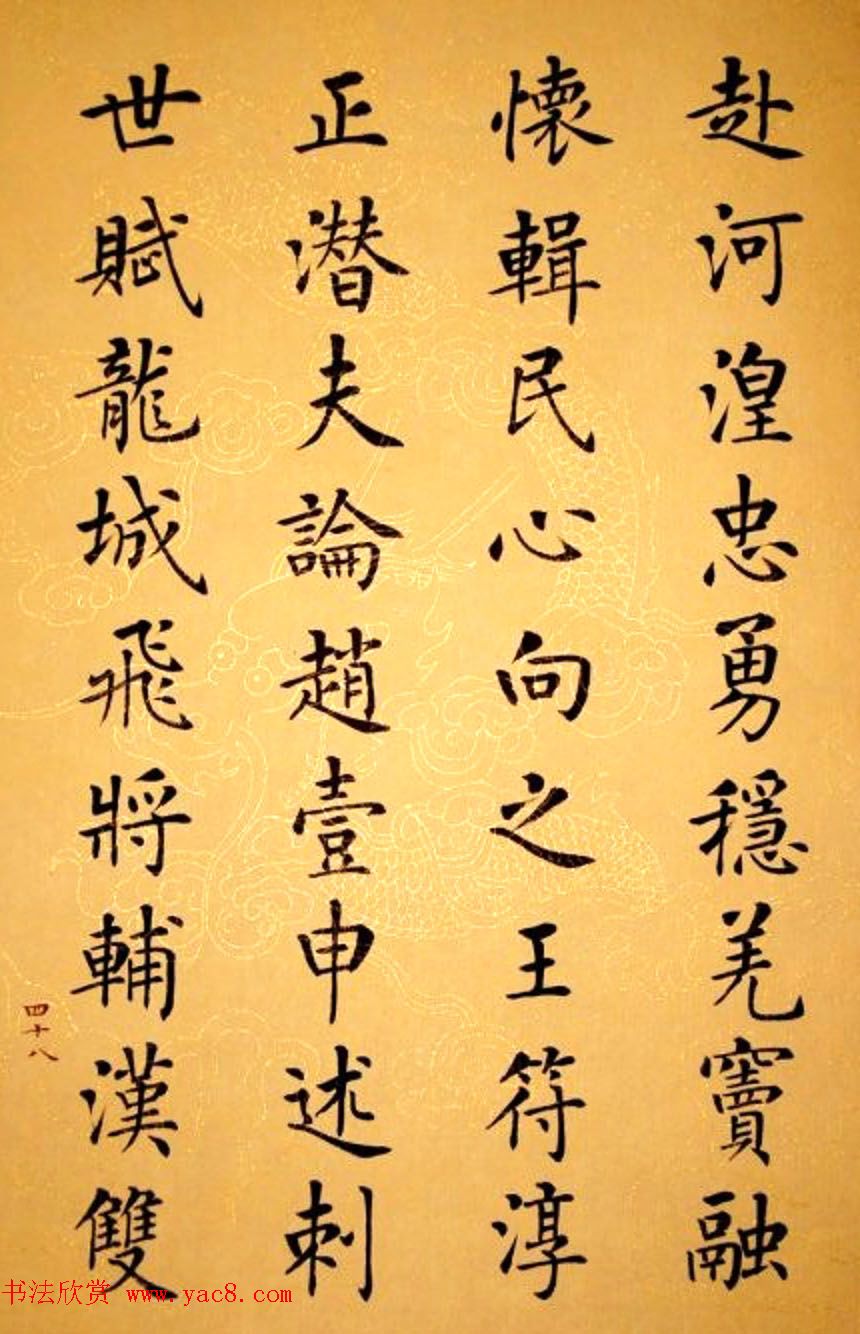 赴河湟忠勇穩羌竇融
懷輯民心向之王符淳
正潛夫論趙壹申述刺
世賦龍城飛將輔漢雙
四十八
书法欣赏 www.yac8.com